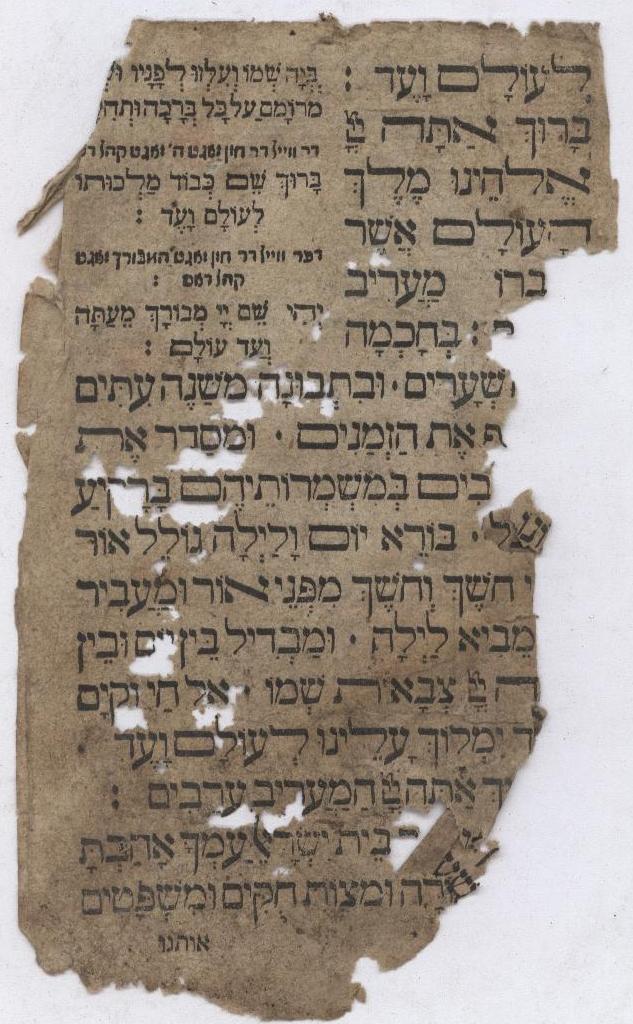 לְעוֹלָם וָעֶד :
בָּרוּךְ אַתָּה יְיָ
אֱלֹהֵינוּ מֶלֶךְ
הָעוֹלָם אֲשֶׁר
מַעֲרִיב
: בְּחָכְמָה
בְּיָהּ שְׁמוֹ וְעִלְזוּ לְפָנָיו
מרוֹמָם עַל כָּל בְּרָכָה
דר ווייל דר חזן זאגט ה' זאגט קהל
בָּרוּךְ שֵׁם כְּבוֹד מַלְכוּתוֹ
לְעוֹלָם וָעֶד :
ווייל דר חזן זאגט המבורך זאגט
קהל דאס :
יְהִי שֵׁם יְיָ מְבוֹרָךְ מֵעַתָּה
וְעַד עוֹלָם :
שְׁעָרִים · וּבִתְבוּנָה מְשַׁנֶּה עִתִּים
אֶת הַזְּמַנִּים · וּמְסַדֵּר אֶת
בִים בְּמִשְׁמְרוֹתֵיהֶם בָּרָקִיעַ
· בּוֹרֵא יוֹם וָלַיְלָה גּוֹלֵל אוֹר
חֹשֶׁךְ וְחֹשֶׁךְ מִפְּנֵי אוֹר וּמַעֲבִיר
מֵבִיא לַיְלָה · וּמַבְדִּיל בֵּין יוֹם וּבֵין
ה יְיָ צְבָאוֹת שְׁמוֹ · אֵל חַי וְקַיָּם
ד יִמְלוֹךְ עָלֵינוּ לְעוֹלָם וָעֶד
ךְ אַתָּה יְיָ הַמַּעֲרִיב עֲרָבִים :
בֵּית יִשְׂרָאֵל עַמְּךָ אָהַבְתָּ
רָה וּמִצְוֹת חֻקִּים וּמִשְׁפָּטִים
אותנו